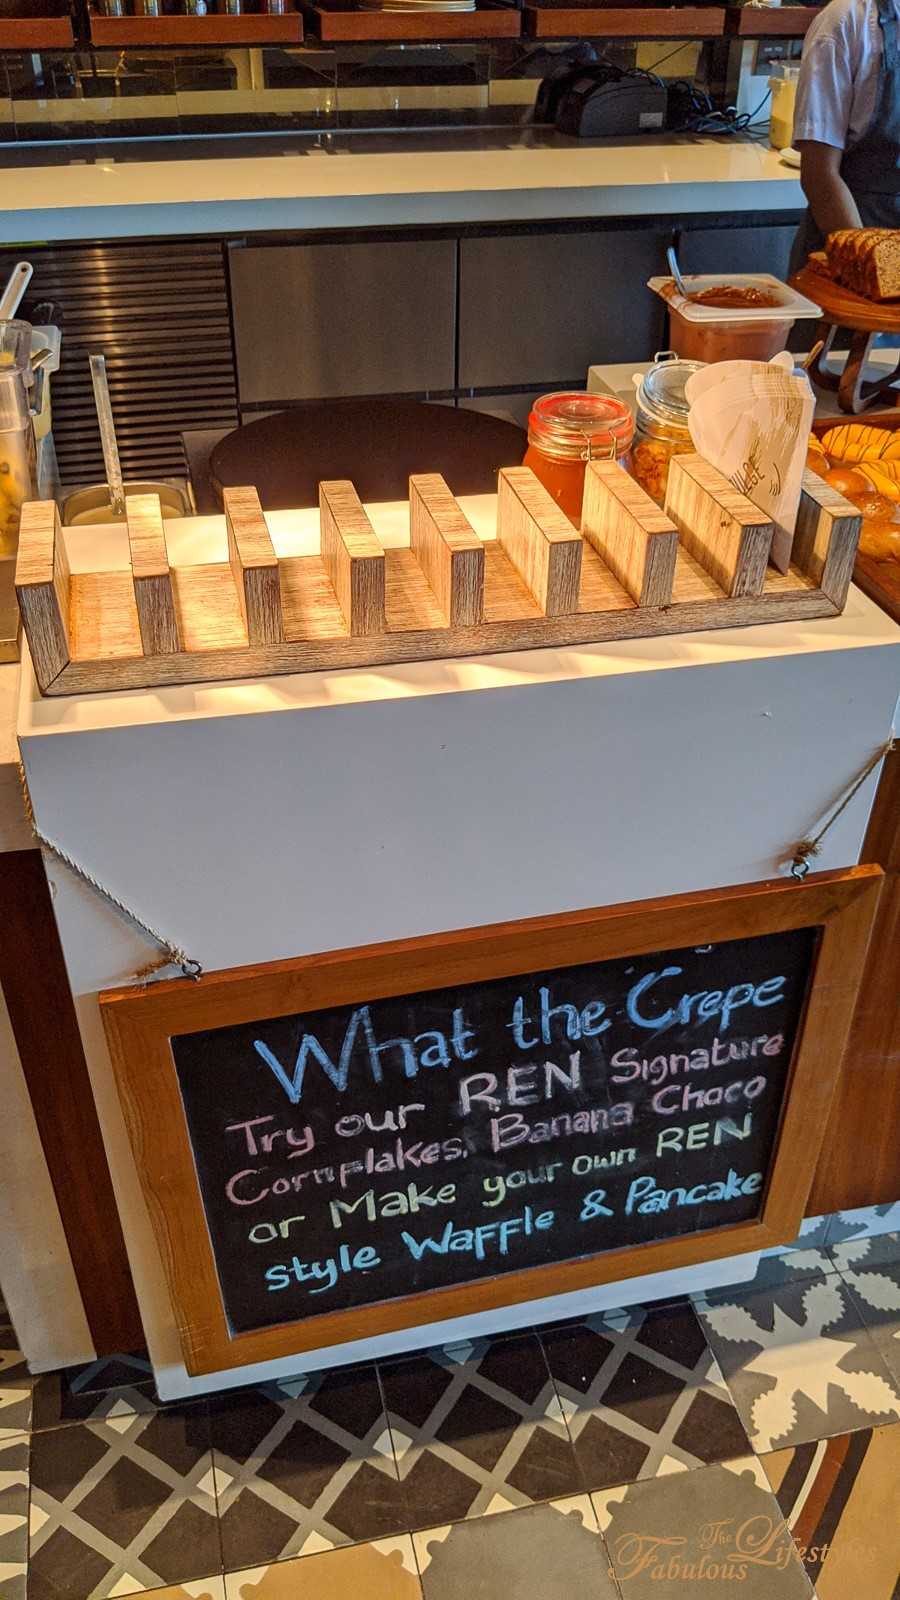 What the Crepe
Try our REN Signature
Cornflakes, Banana Choco
or Make your own REN
style Waffle & Pancake
The
Fabulous Lifestyles